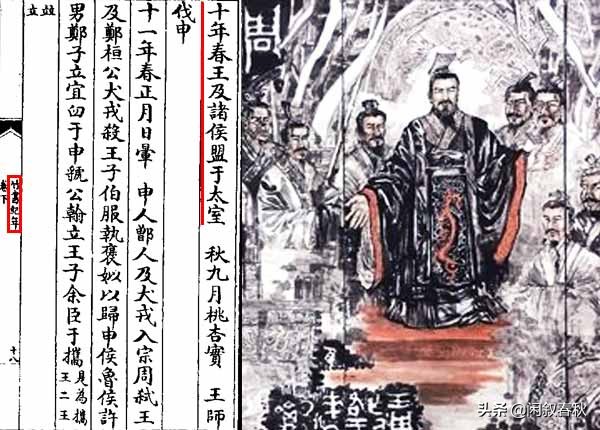 十年春王及諸侯盟于太室 秋九月桃杏實 王師
伐申
十一年春正月日暈 申人鄫人及犬戎入宗周弒王
及鄭桓公犬戎殺王子伯服執褒姒以歸申侯魯侯許
男鄭子立宜臼于申虢公翰立王子余臣于攜 是為攜王二王
竝立
竹書紀年
卷下
十八
周
头条 @闲叙春秋